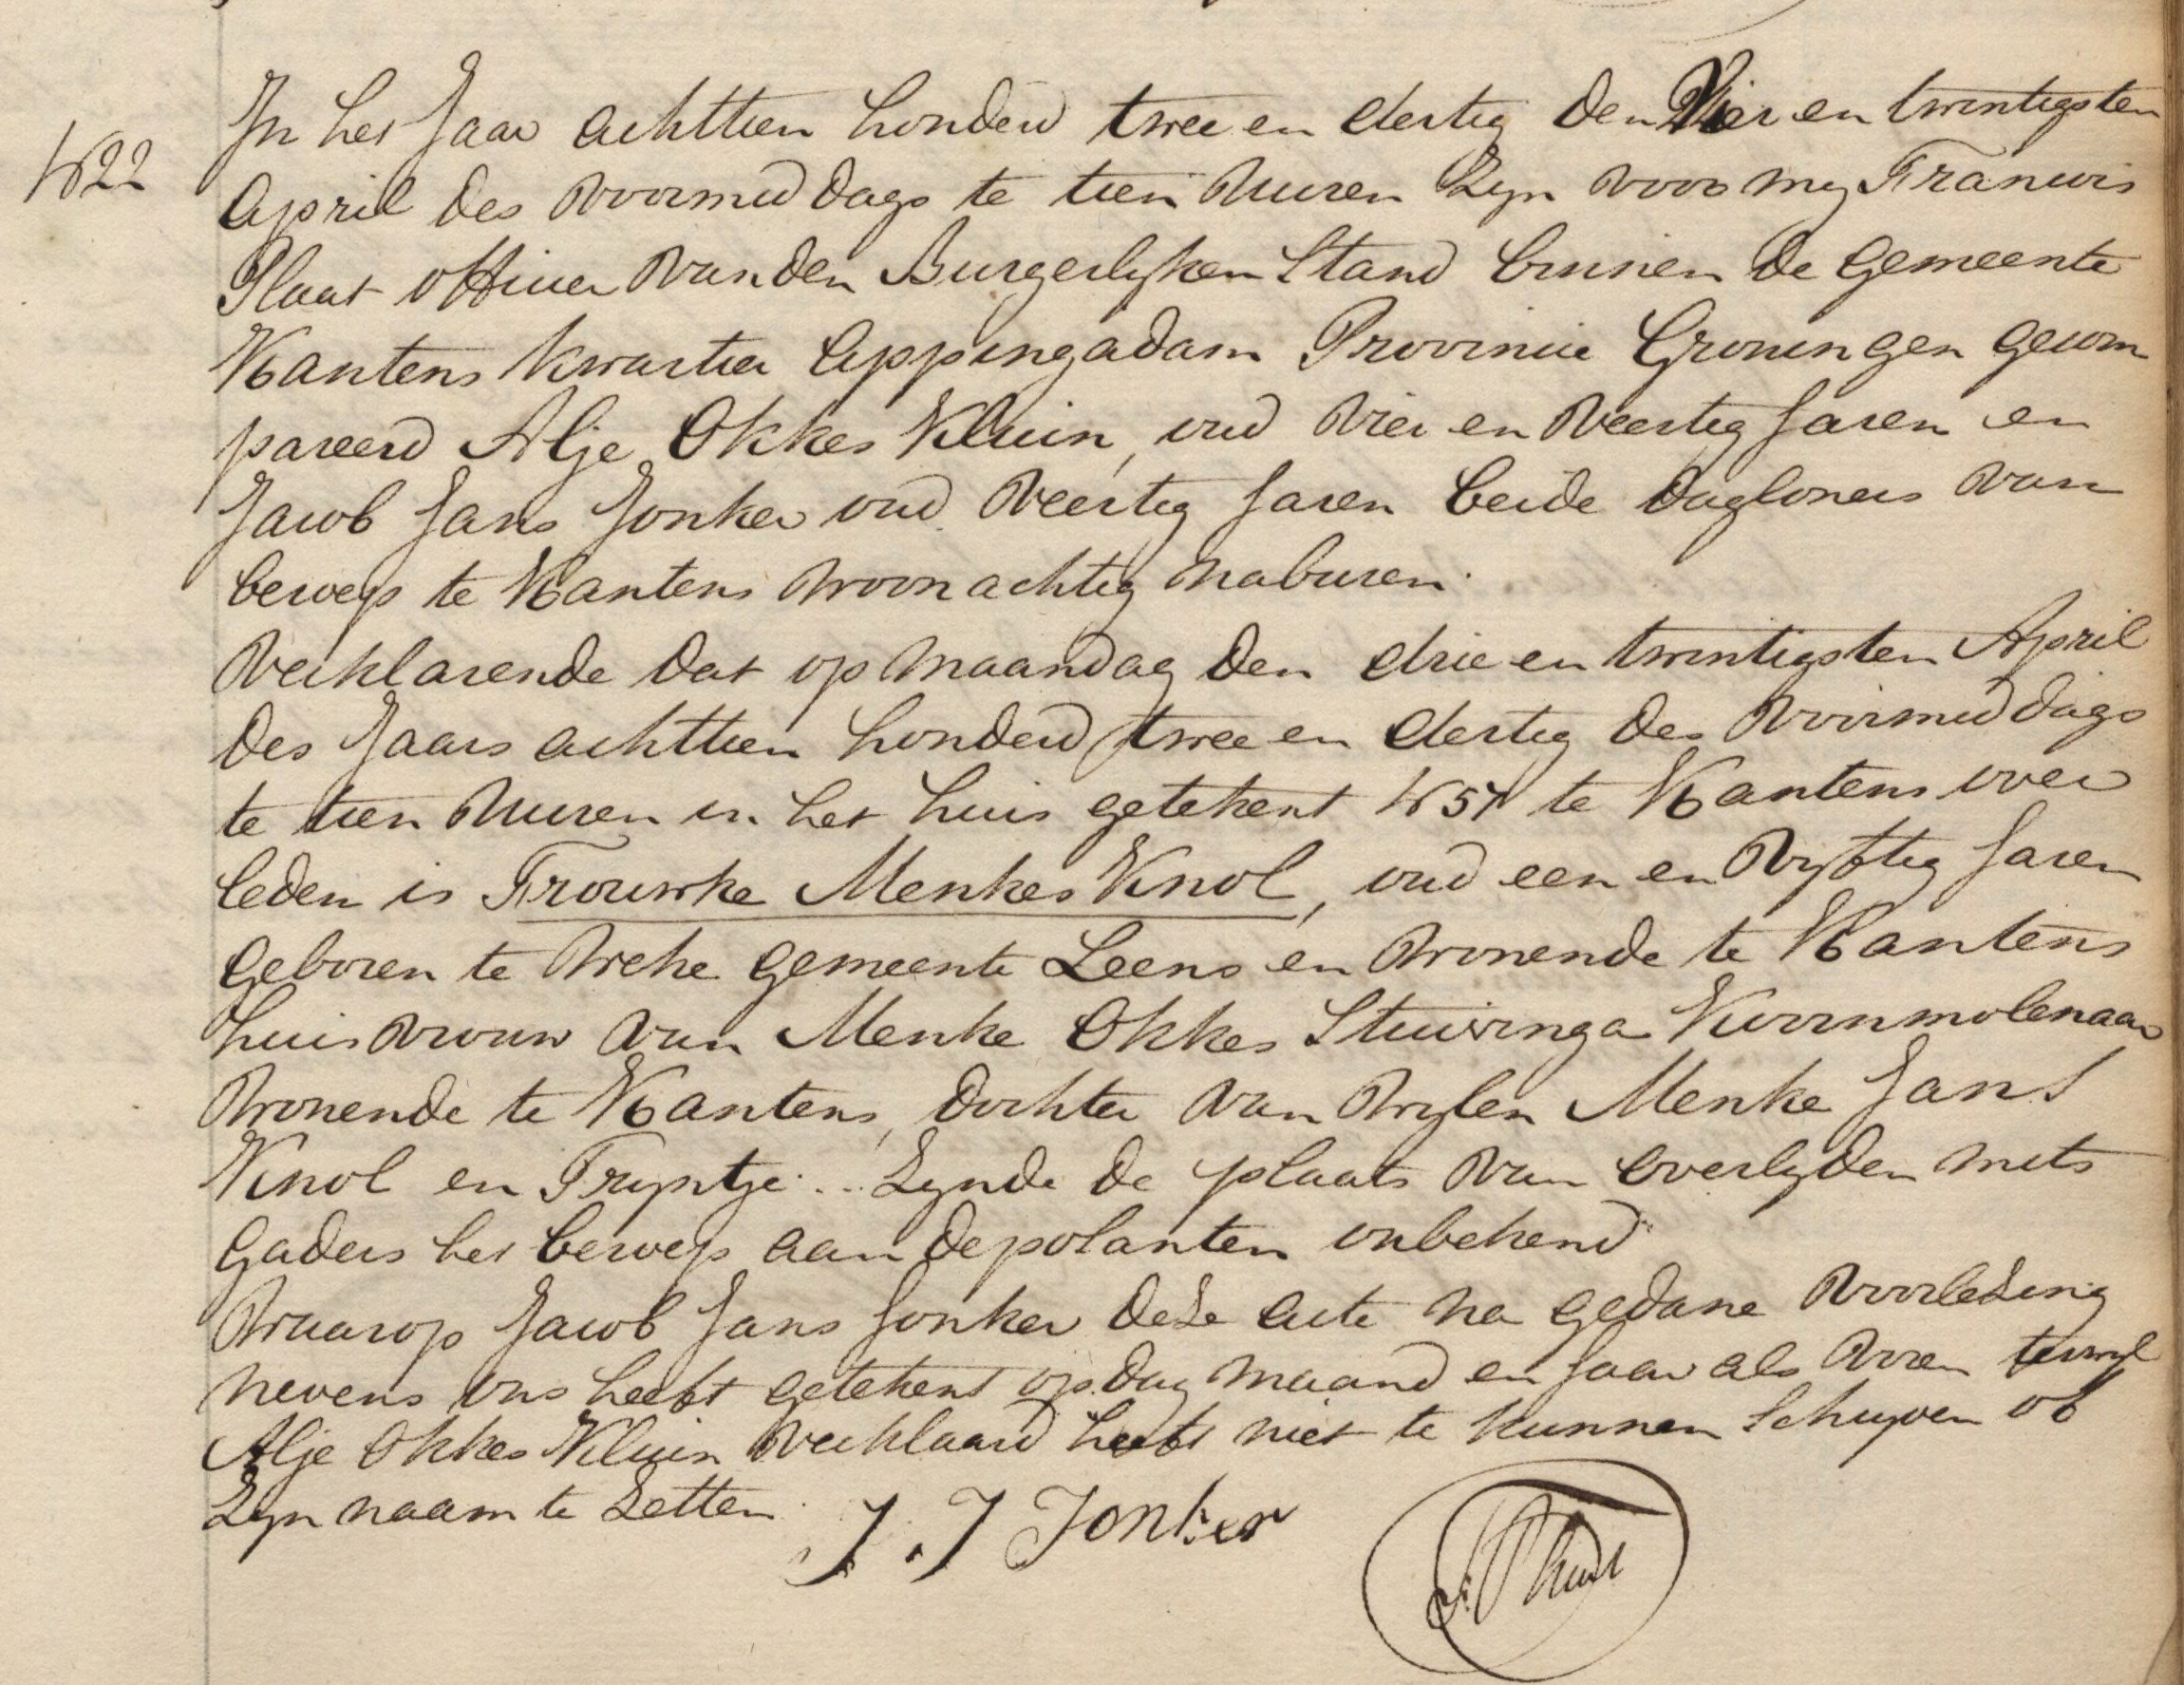 N 22
In het Jaar achttien honderd twee en dertig den Vier en twintigsten
April des voormiddags te tien Uuren Zyn voor my Francois
Plaat officier van den Burgerlyken Stand binnen de Gemeente
Kantens kwartier Appingadam Provincie Groningen gecom
pareerd Alje Okkes Kluin, oud vier en veertig Jaren en
Jacob Jans Jonker oud veertig Jaren beide dagloners van
beroep te Kantens woonachtig naburen.
Verklarende dat op maandag den drie en twintigsten April
des Jaars achttien honderd twee en dertig des voormiddags
te tien Uuren in het huis getekent N 54 te Kantens over
leden is Trouwke Menkes Knol, oud een en vyftig Jaren
geboren te Wehe gemeente Leens en wonende te Kantens
huisvrouw van Menke Okkes Stuivinga Koornmolenaar
wonende te Kantens, dochter van wylen Menke Jans
Knol en Tryntje... Zynde de plaats van overlyden mits
gaders het beroep aan depolanten onbekend
Waarop Jacob Jans Jonker deze acte na gedane voorlezing
nevens ons heeft getekent op dag maand en jaar als voren terwyl
Alje Okkes Kluin verklaard heeft niet te kunnen schryven of
Zyn naam te Zetten.
J. J Jonker
F. Plaat